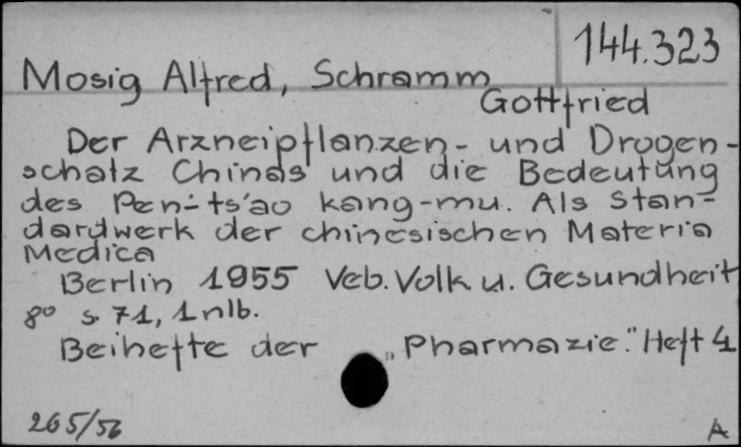 144.323
Mosig Alfred, Schramm
Gottfried
Der Arzneipflanzen- und Drogen-
schatz Chinas und die Bedeutung
des Pen-ts'ao kang-mu. Als Stan-
dardwerk der chinesischen Materia
Medica
Berlin 1955 Veb. Volk u. Gesundheit
8° s. 71, 1 nlb.
Beihefte der „Pharmazie." Heft 4
265/56
A